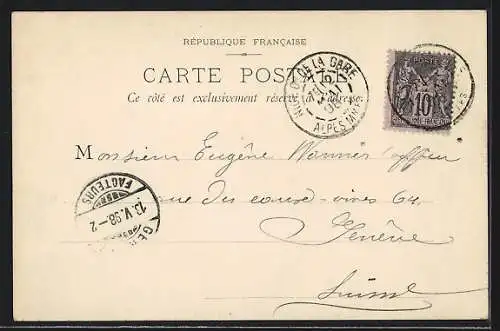 RÉPUBLIQUE FRANÇAISE
CARTE POSTALE
Ce côté est exclusivement réservé à l'adresse.
DE LA GARE
MAI
ALPES MMES
POSTE
10
Monsieur Eugène
rue des Eaux-vives 64
Genève
Suisse
FACTEURS
13.V.98.-2
GE